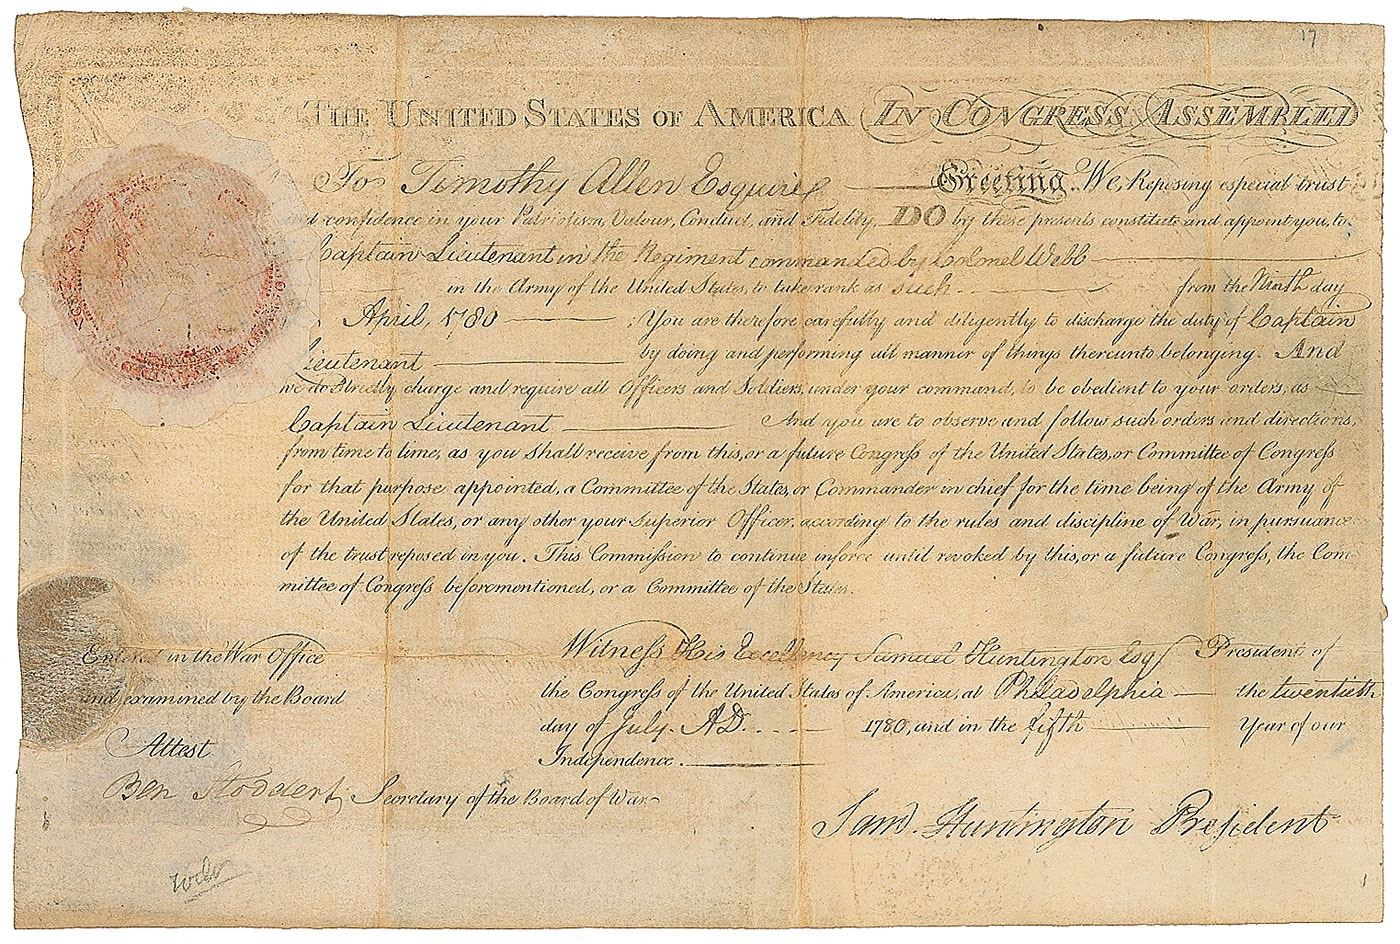 17
THE UNITED STATES OF AMERICA IN CONGRESS ASSEMBLED
To Timothy Allen Esquire Greeting. We, Reposing especial trust
and confidence in your Patriotism, Valour, Conduct, and Fidelity, DO by these presents constitute and appoint you, to
Captain Lieutenant in the Regiment commanded by Colonel Webb
in the Army of the United States, to take rank as such from the Ninth day
April, 1780 You are therefore carefully and diligently to discharge the duty of Captain
Lieutenant by doing and performing all manner of things thereunto belonging. And
we do strictly charge and require all Officers and Soldiers, under your command, to be obedient to your orders, as
Captain Lieutenant And you are to observe and follow such orders and directions,
from time to time, as you shall receive from this, or a future Congress of the United States, or Committee of Congress
for that purpose appointed, a Committee of the States, or Commander in chief for the time being of the Army of
the United States, or any other your Superior Officer, according to the rules and discipline of War, in pursuance
of the trust reposed in you. This Commission to continue in force until revoked by this, or a future Congress, the Com
mittee of Congress beforementioned, or a Committee of the States.
Entered in the War Office
and examined by the Board
Attest
Ben Stoddert Secretary of the Board of War
Witness His Excellency Samuel Huntington Esq President of
the Congress of the United States of America, at Philadelphia the twentieth
day of July A.D. 1780, and in the fifth Year of our
Independence.
Sam. Huntington President